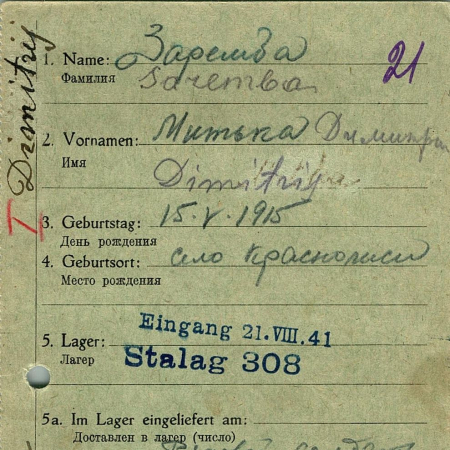 21
Dimitrij
1. Name: Заремба
Фамилия Saremba
2. Vornamen: Митька Димитри
Имя
Dimitrij
3. Geburtstag: 15.V.1915
День рождения
4. Geburtsort: село
Место рождения
Eingang 21.VIII.41
5. Lager:
Лагер Stalag 308
5a. Im Lager eingeliefert am:
Доставлен в лагер (число)